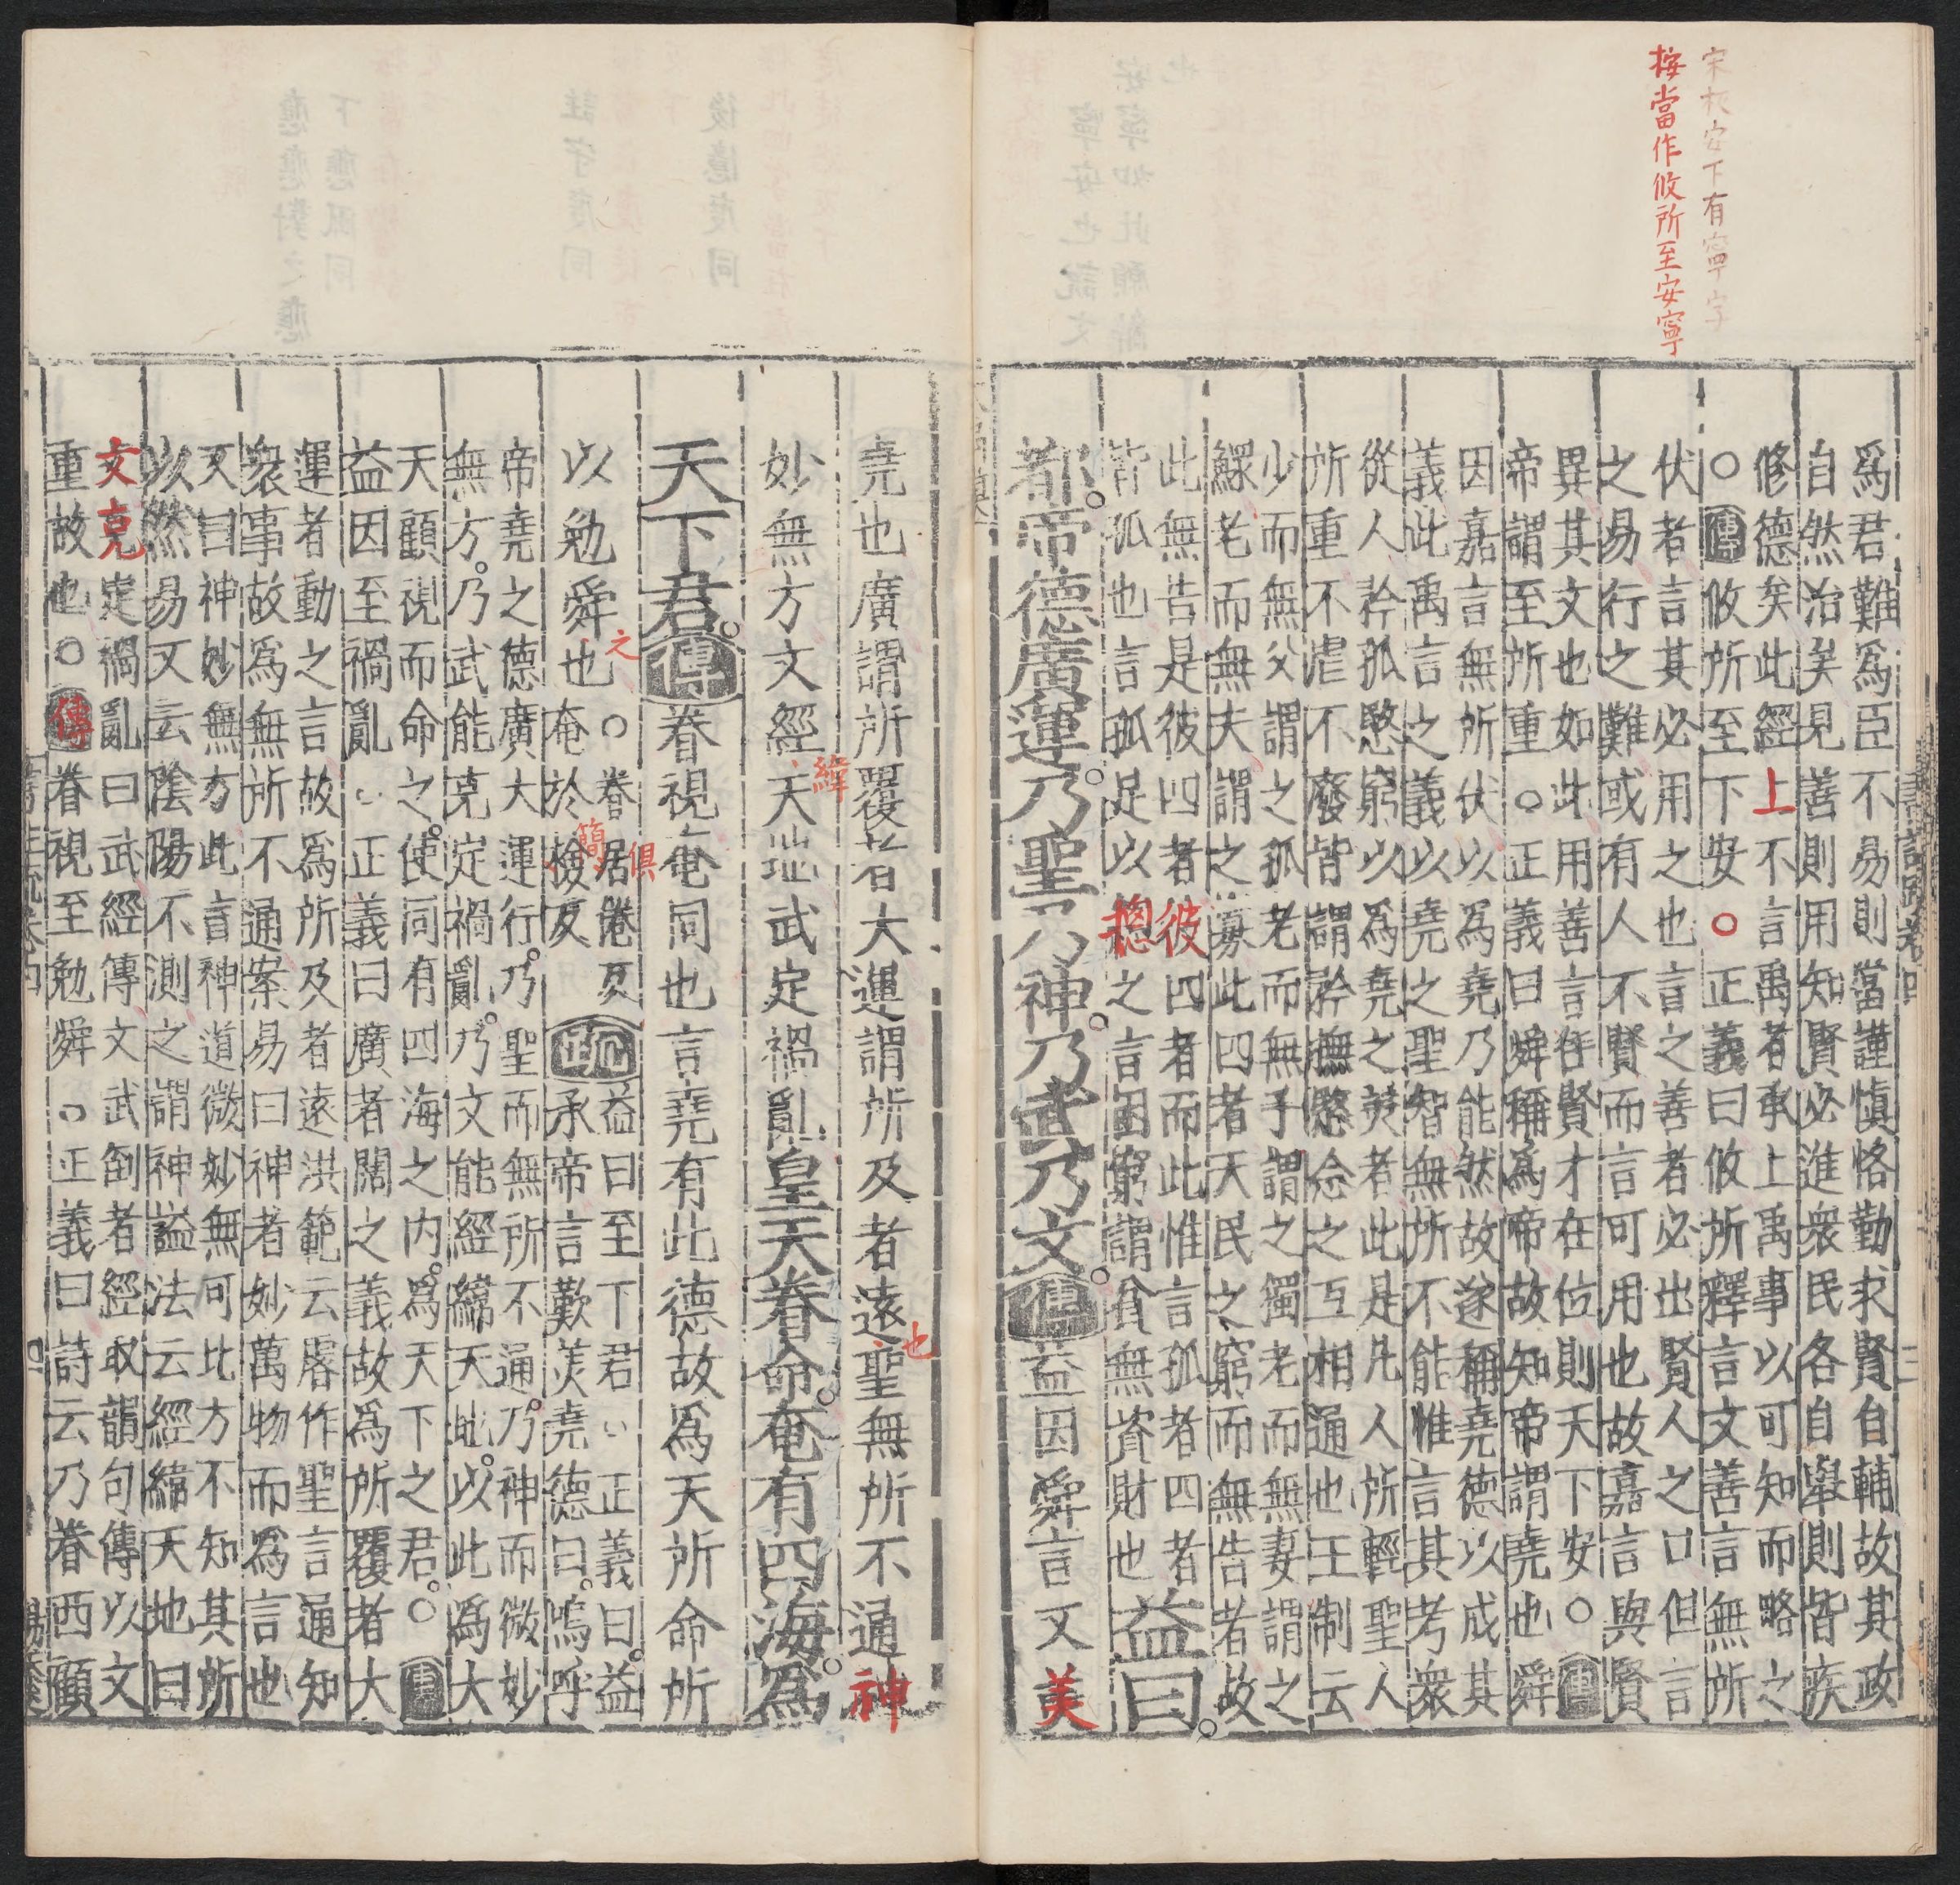 宋板安下有寧字
按當作攸所至安寧
為君難為臣不易則當謹慎恪勤求賢自輔故其政
自然治矣見善則用知賢必進衆民各自舉則皆疾
修德矣此經上不言禹者承上禹事以可知而略之
○傳攸所至下安○正義曰攸所釋言文善言無所
伏者言其必用之也言之善者必出賢人之口但言
之易行之難或有人不賢而言可用也故嘉言與賢
異其文也如此用善言任賢才在位則天下安○傳
帝謂至所重○正義曰舜稱為帝故知帝謂堯也舜
因嘉言無所伏以為堯乃能然故遂稱堯德以成其
義此禹言之義以堯之聖智無所不能惟言其考衆
從人矜孤愍窮以為堯之美者此是凡人所輕聖人
所重不虐不廢皆謂矜撫愍念之互相通也王制云
少而無父謂之孤老而無子謂之獨老而無妻謂之
鰥老而無夫謂之寡此四者天民之窮而無告者故
此無告是彼四者彼四者而此惟言孤者四者
皆孤也言孤足以總之言困窮謂貧無資財也益曰
都帝德廣運乃聖乃神乃武乃文傳益因舜言又美
堯也廣謂所覆者大運謂所及者遠也聖無所不通神
妙無方文經緯天地武定禍亂皇天眷命奄有四海為
天下君傳眷視奄同也言堯有此德故為天所命所
以勉舜之也○眷居倦反俱
奄於檢反簡疏益曰至下君○正義曰益
承帝言歎美堯德曰嗚呼
帝堯之德廣大運行乃聖而無所不通乃神而微妙
無方乃武能克定禍亂乃文能經緯天地以此為大
天顧視而命之使同有四海之內為天下之君○傳
益因至禍亂○正義曰廣者闊之義故為所覆者大
運者動之言故為所及者遠洪範云睿作聖言通知
衆事故為無所不通案易曰神者妙萬物而為言也
又曰神妙無方此言神道微妙無可比方不知其所
以然易又云陰陽不測之謂神謚法云經緯天地曰
文克定禍亂曰武經傳文武倒者經取韻句傳以文
重故也○傳眷視至勉舜○正義曰詩云乃眷西顧